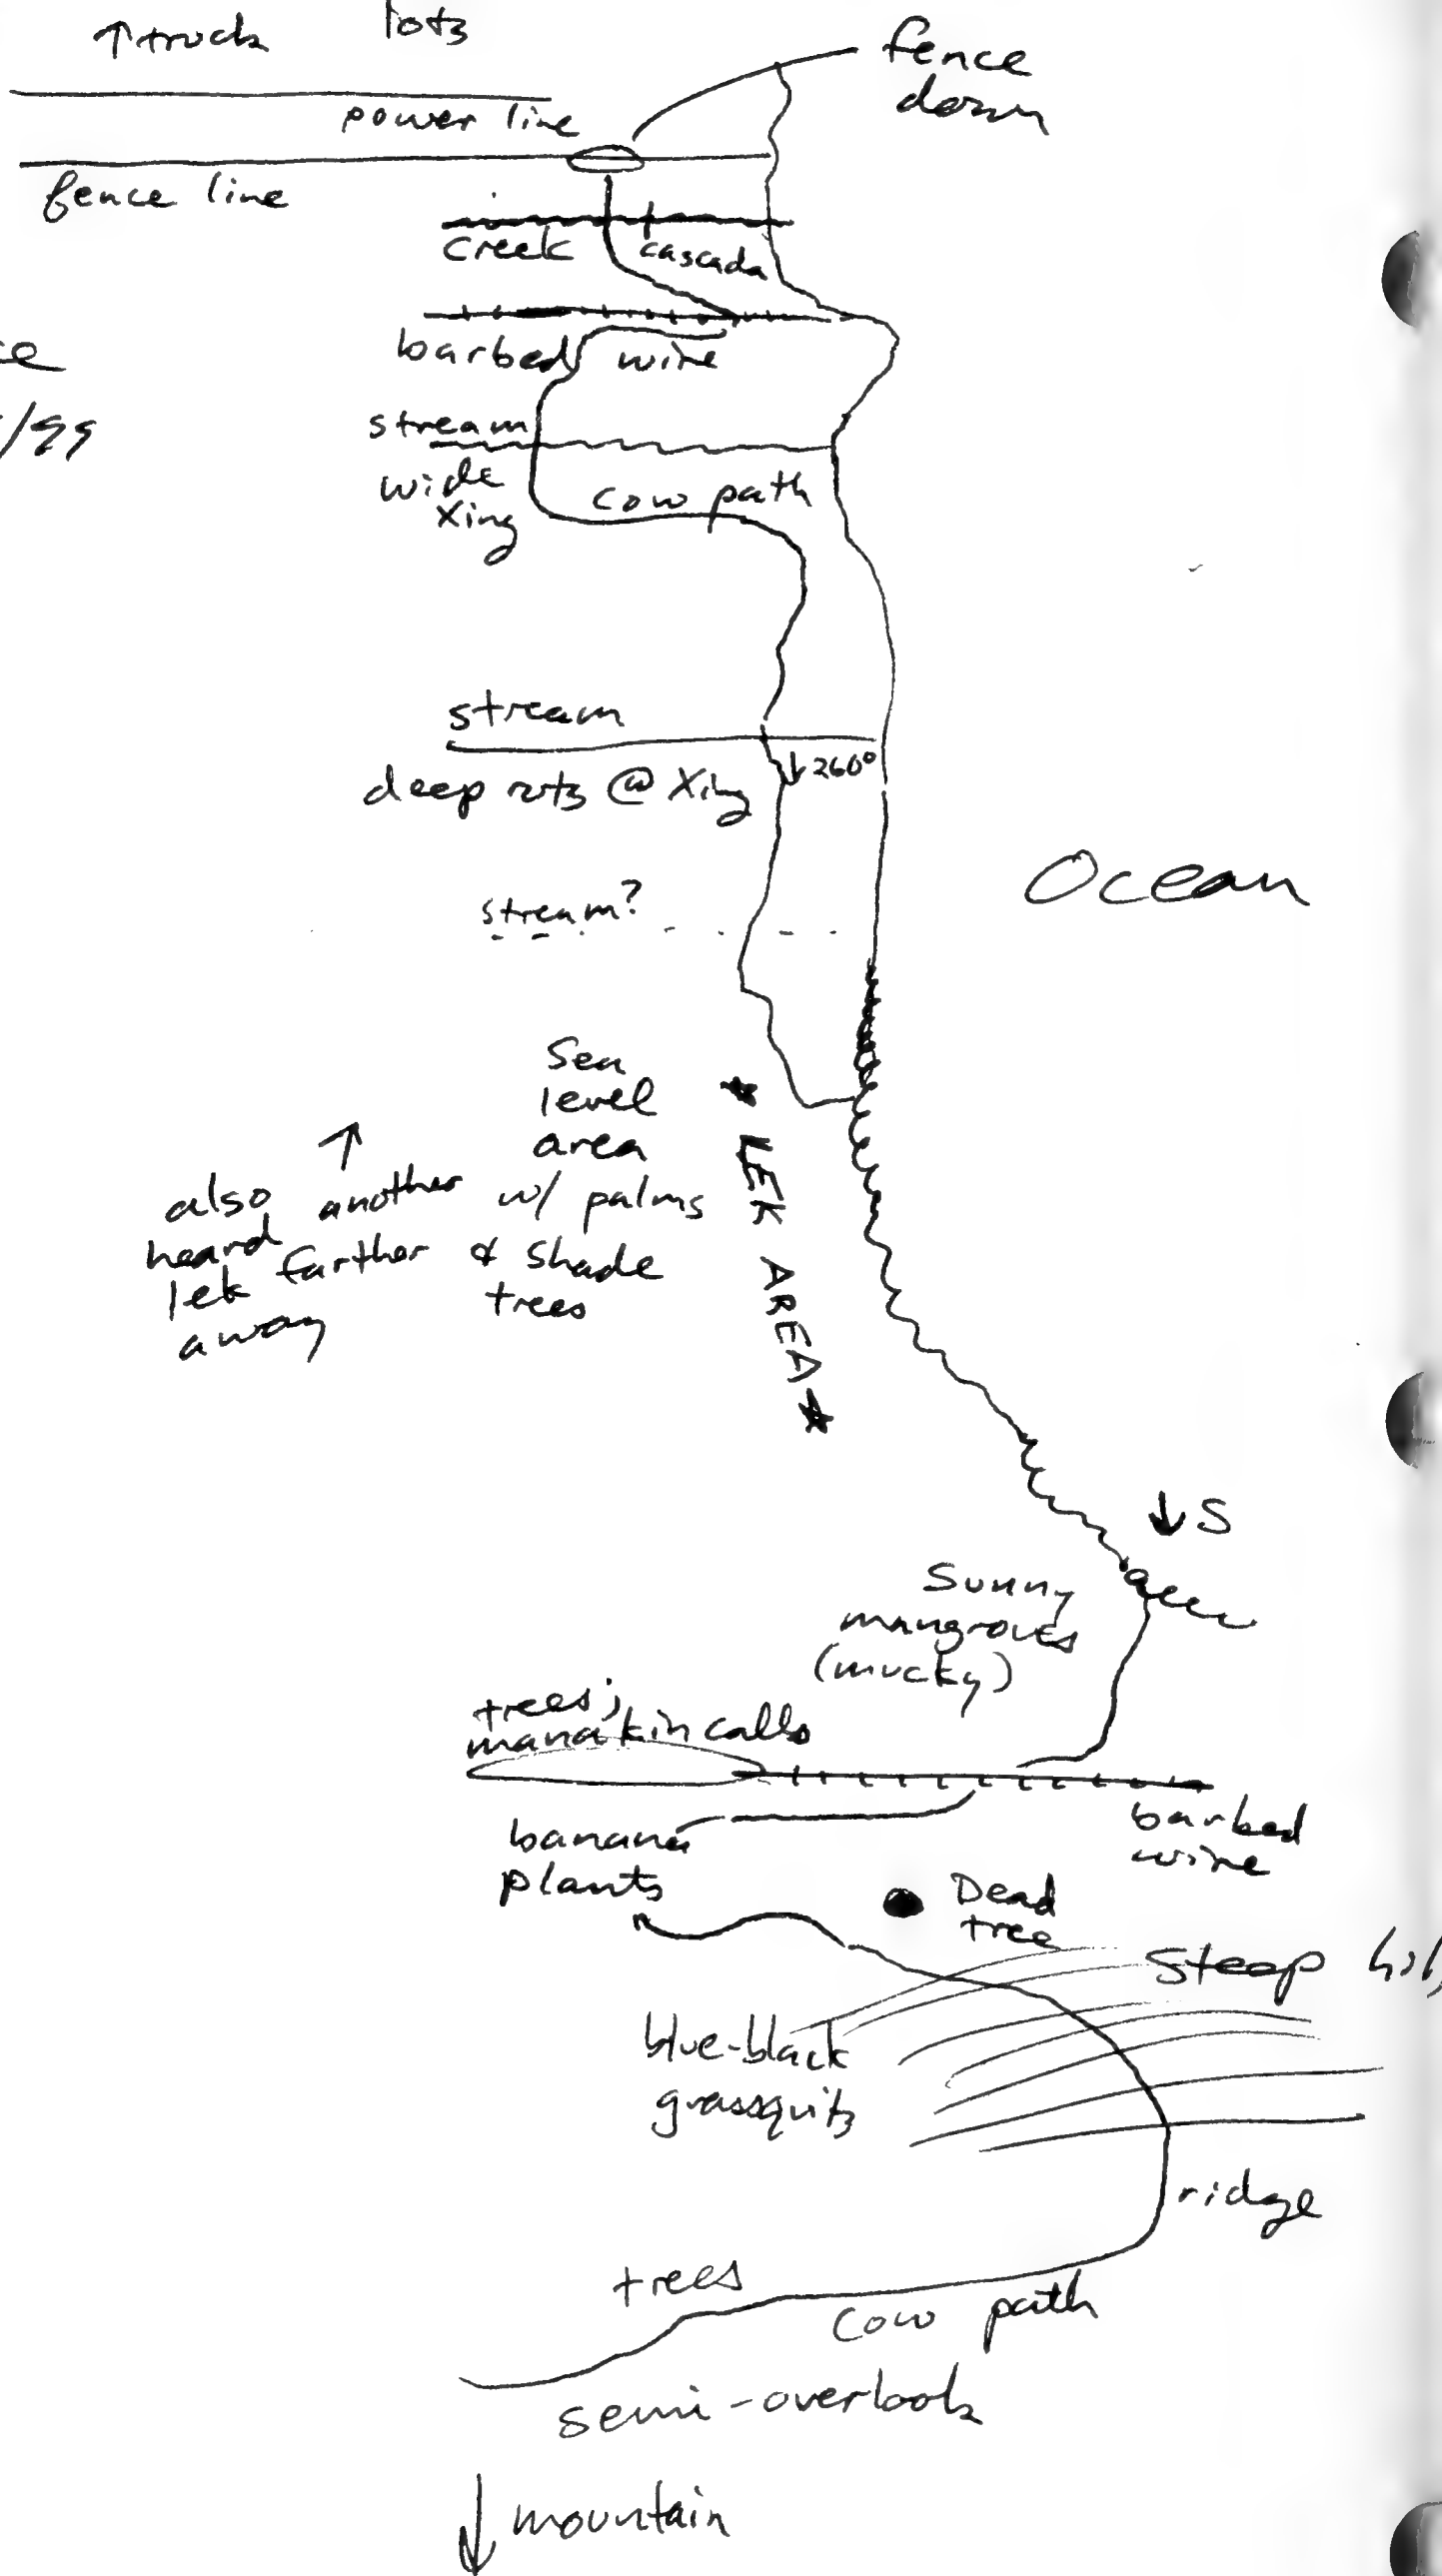 ↑ truck lots
fence
down
power line
fence line
creek cascada
barbed wire
/99
stream
wide
Xing
cow path
stream
deep ruts @ Xing
↓260°
stream?
Ocean
Sea
level
area
w/ palms
& shade
trees
↑
also another
heard
lek farther
away
* LEK AREA *
↓ S
Sunny
mangroves
(mucky)
trees;
manakin calls
barbed
wire
banana
plants
Dead
tree
Steep
blue-black
grassquits
ridge
trees
cow path
semi-overlook
↓ mountain